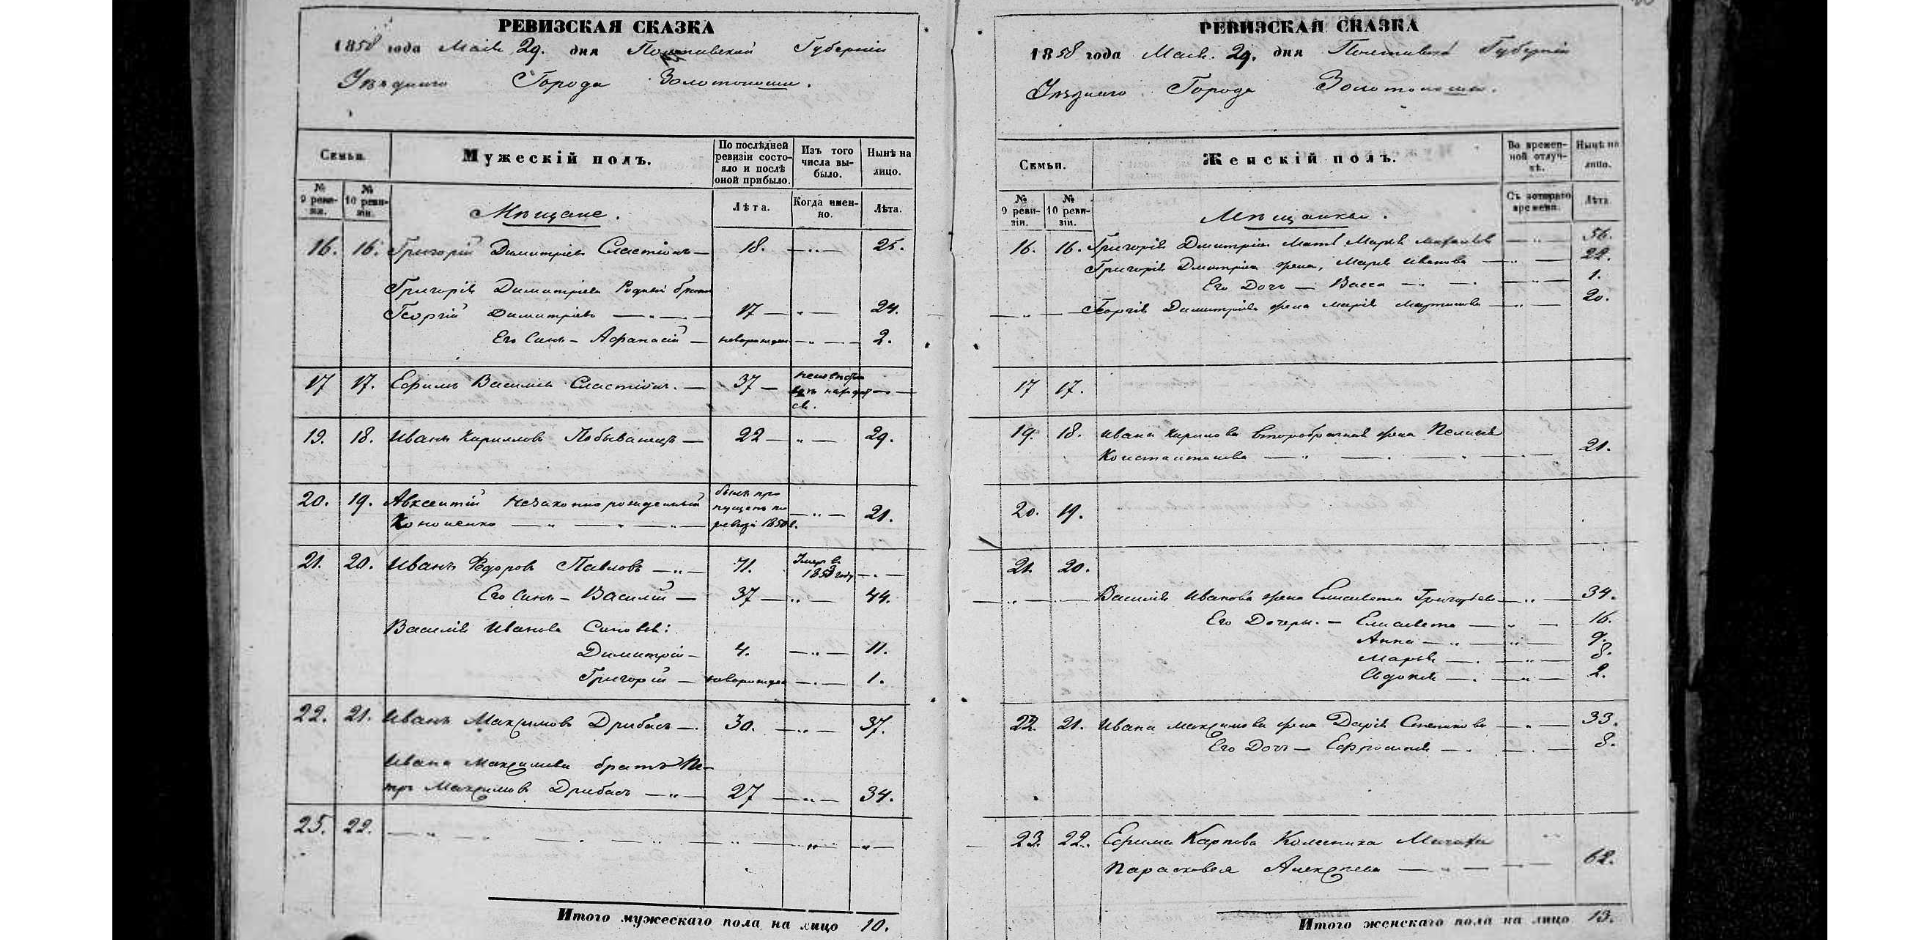 РЕВИЗСКАЯ СКАЗКА
1858 года Маія 29. дня Полтавской Губерніи
Уѣзднаго Города Золотоноши.
Семьи.
Мужескій полъ.
По послѣдней ревизіи состояло и послѣ оной прибыло.
Изъ того числа выбыло.
Нынѣ на лицо.
№ 9 ревизіи.
№ 10 ревизіи.
Мѣщане.
Лѣта.
Когда именно.
Лѣта.
16. 16. Григорій Димитріевъ Сластіонъ — 18. — „ — 25.
Григорія Димитріева Родный братъ
Георгій Димитріевъ — „ — 17 — „ — 24.
Его Сынъ — Афанасій — новорожден — „ — 2.
17 17. Ефимъ Василіевъ Сластіонъ. — 37 —
19. 18. Иванъ Кирилловъ Побыванецъ — 22 — „ — 29.
20. 19. Авксентій Незаконнорожденный
Кононенко — „ — „ — былъ пропущенъ по ревизіи 1850 г. — „ — 21.
21. 20. Иванъ Ѳедоровъ Павловъ — „ — 71. Умеръ въ 1853 году — „ —
Его Сынъ — Василій — 37 — „ — 44.
Василія Иванова Сыновья:
Димитрій — 4. — „ — 11.
Григорій — новорожден — „ — 1.
22. 21. Иванъ Максимовъ Дрибасъ — 30. — „ — 37.
Ивана Максимова братъ Пе-
тръ Максимовъ Дрибасъ — „ — 27 — „ — 34.
25. 22. — „ — „ — „ —
Итого мужескаго пола на лицо 10.
РЕВИЗСКАЯ СКАЗКА
1858 года Маія. 29. дня Полтавской Губерніи
Уѣзднаго Города Золотоноши.
Семьи.
Женскій полъ.
Во временной отлучкѣ.
Нынѣ на лицо.
№ 9 ревизіи.
№ 10 ревизіи.
Мѣщанки.
Съ котораго времени.
Лѣта.
16. 16. Григорія Димитріева Мать Марія — „ — 56.
Григорія Димитріева жена, Марія Иванова — „ — 22.
Его Дочь — Васса — „ — 1.
Георгія Димитріева жена Марія Мартинова — „ — 20.
17 17.
19. 18. Ивана Кирилова второбрачная жена Пелагія
Константинова — „ — „ — 21.
20. 19.
21. 20.
Василія Иванова жена Елисавета Григорьева — „ — 34.
Его Дочери. — Елисавета — „ — 16.
Анна — „ — 9.
Марья — „ — 8.
Авдотія — „ — 2.
22. 21. Ивана Максимова жена Дарія — „ — 33.
Его Дочь — Ефросинія — „ — 8.
23. 22. Ефима Карпова Мачиха
Парасковея Алексѣева — „ — 62.
Итого женскаго пола на лицо 13.